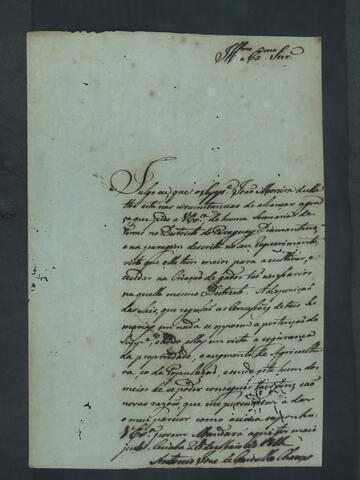 Illmo e Exmo Snr.
Julgo eu, que o Suppe. João Moreira
está nas circunstancias de alcançar a graça
que pede a V. Exa. de huma Sesmaria de
terras no Destricto do Paraguay Diamantino,
e na paragem descrita no seu requerimento,
visto que elle tem meios para a cultivar, e
cuidar na Criação de gados
naquelle mesmo Destricto. A disposição
das Leis, que regulão as Concessões de Sesmarias
em nada se oppoem a pertenção do
Suppe. tendo ellas em vista a segurança
da propriedade, o augmento da Agricultura,
e da População, e sendo este hum dos
meios de se poder conseguir
novas razões, que me persuadem a dar
o meu parecer
V. Exa. porem Mandará o que for mais
justo. Cuiabá
Antonio José de Carvalho Chaves